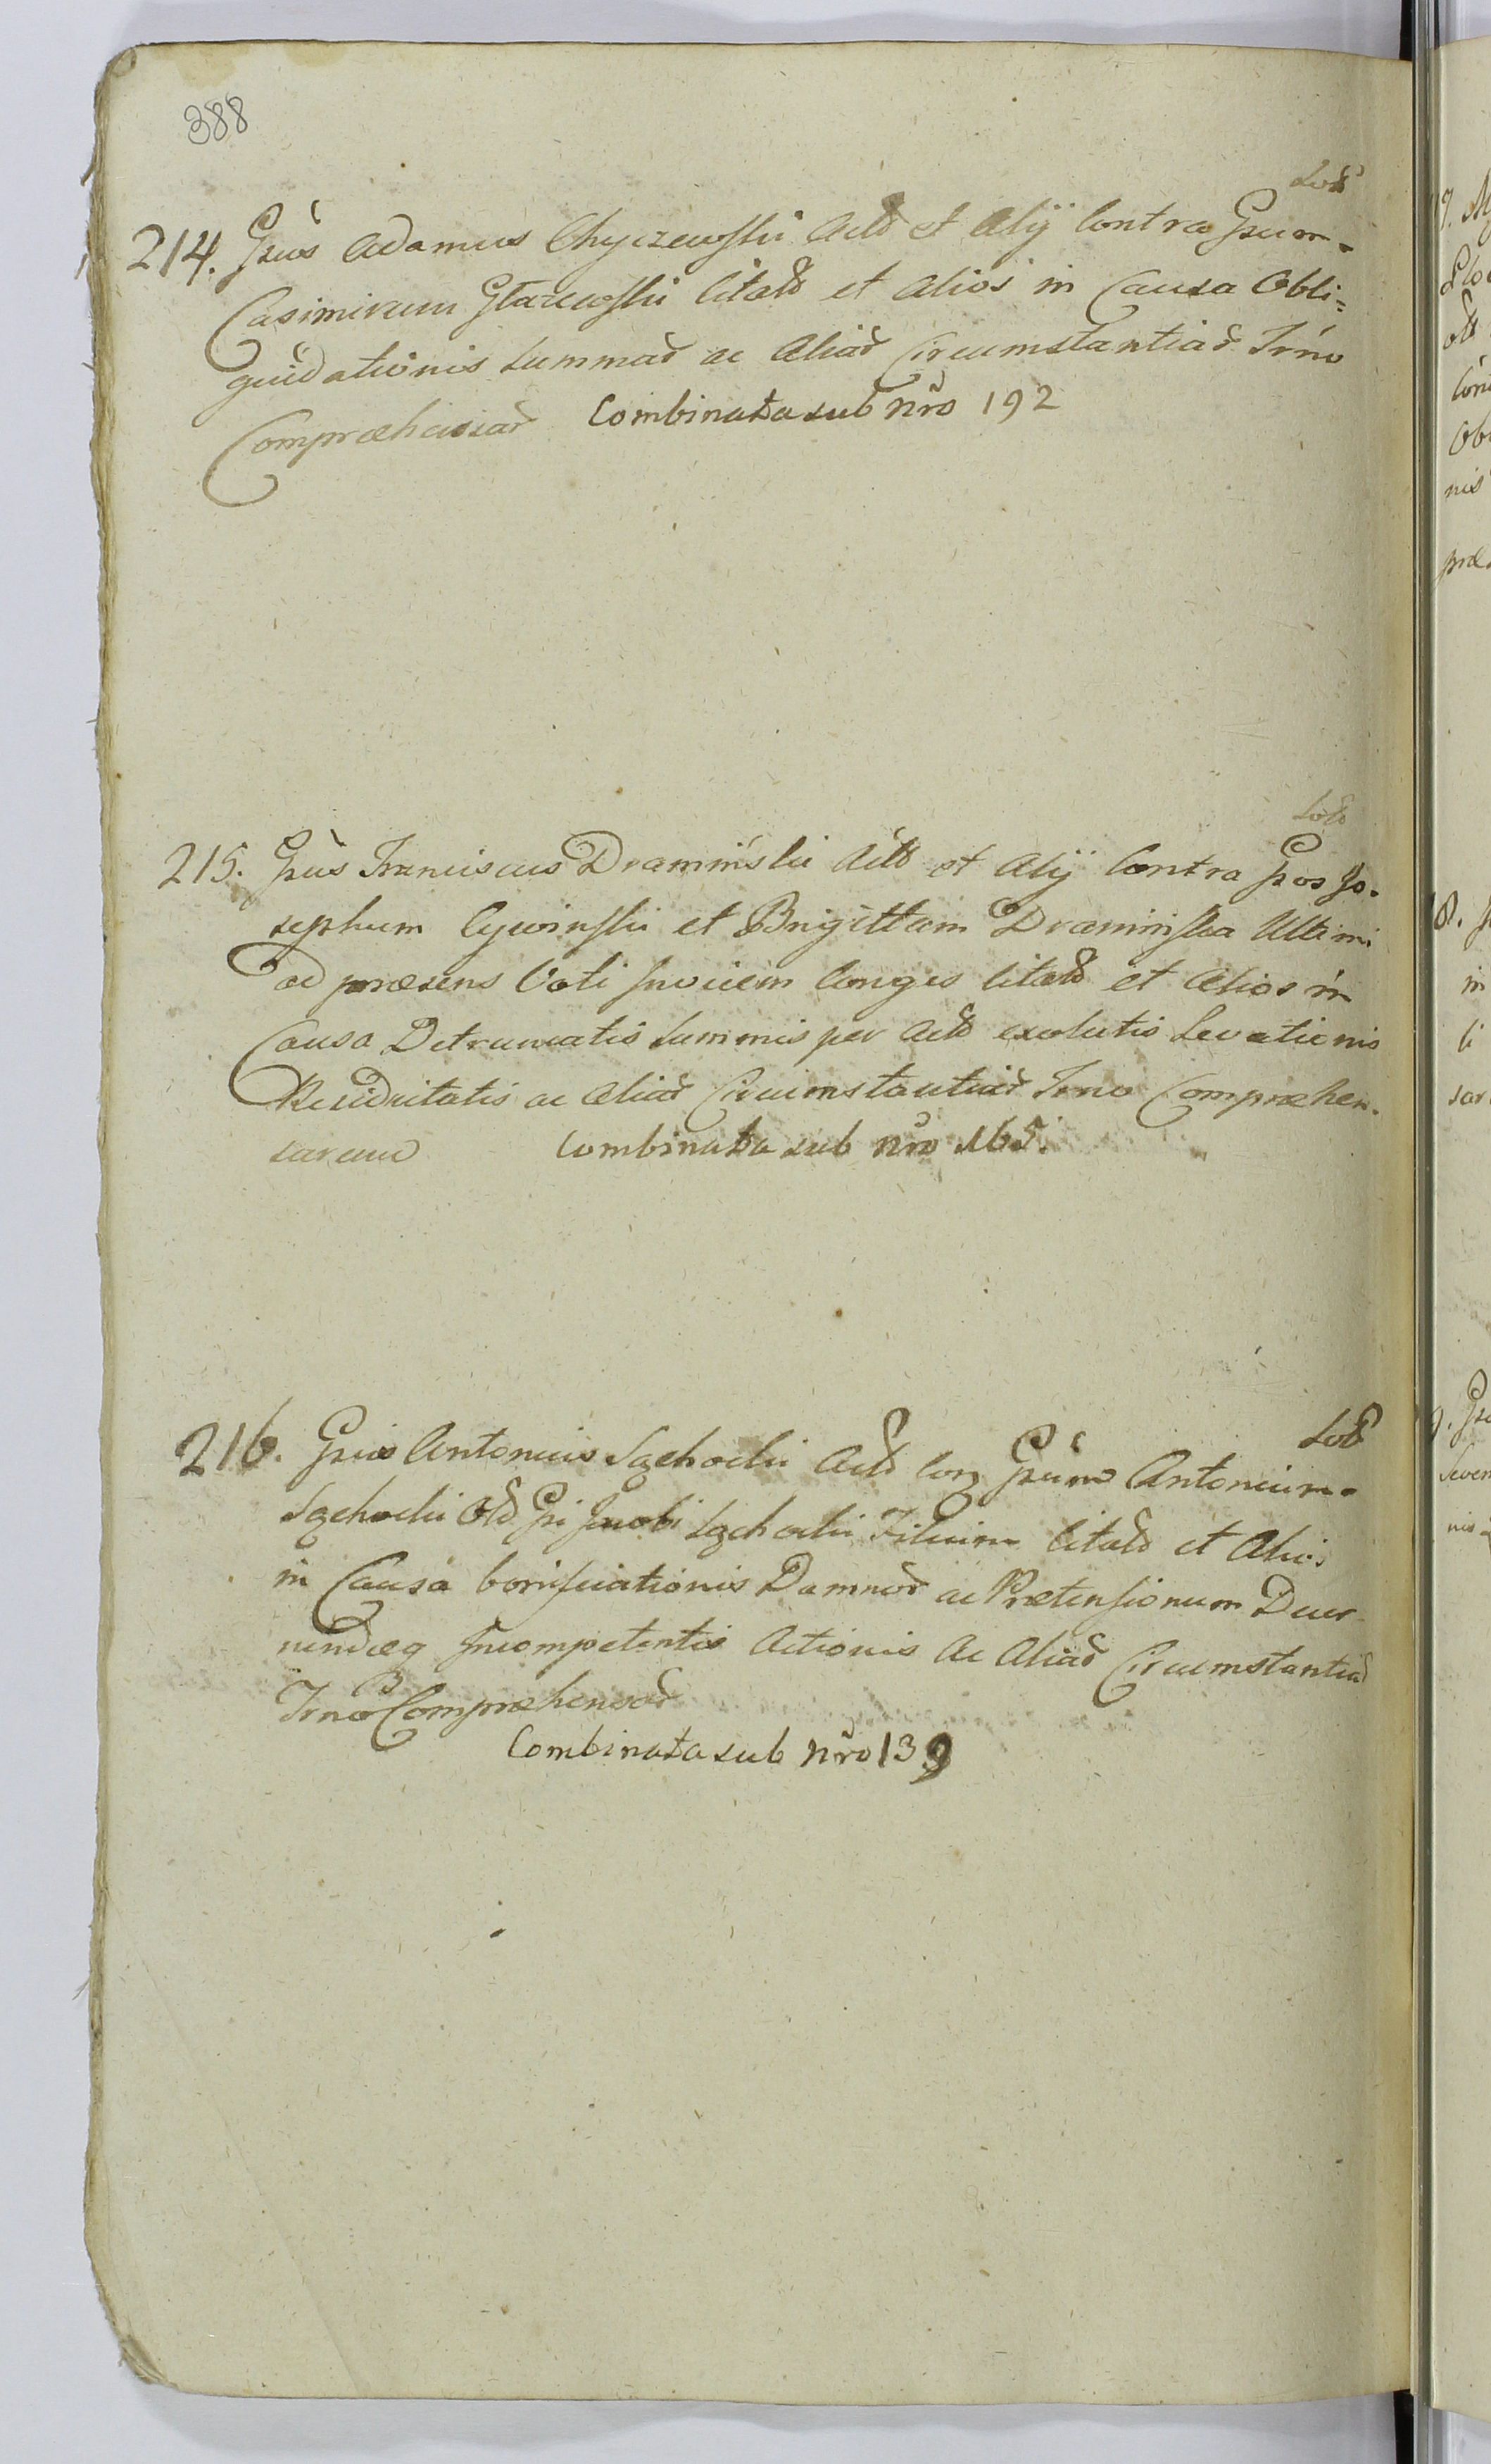 388
214. Grūs Adamus Chyczewski Actō et Alij Contra Grum
Casimirum Staczewski Citatō et Alios in Causa Obli=
quidationis Summar̄ ac Aliar̄ Circumstantiar̄ Trno
Compraehensar̄ Combinata sub Nro 192
215. Grūs Franciscus Draminski Actō et Alij Contra Gros Jo-
sephum Cywinski et Brigittam Draminska Ultimi
ad praesens Voti Invicem Conges Citatō et Alios in
Causa Detruncatis Summis per Actō exolutis Levationis
Reciduitatis ac Aliar̄ Circumstantiar̄ Trno Compraehen-
sarum Combinata sub Nro 165.
216. Grūs Antonius Sąchocki Actō Con Grūm Antonium
Sąchocki Olō Gri Jacobi Sąchocki Filium Citatō et Alios
in Causa bonificationis Damnor̄ ac Praetensionum Decer
nendaeq Incompetentis Actionis Ac Aliar̄ Circumstantiar̄
Trno Compraehensar̄
Combinata sub Nro 139